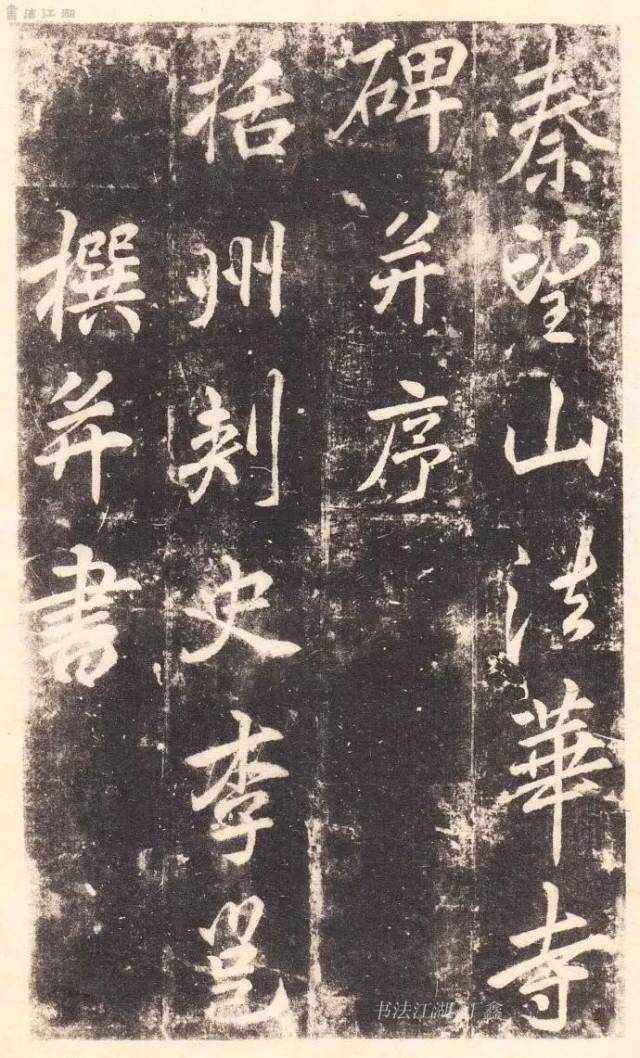 秦望山法華寺
碑并序
括州刺史李邕
撰并書
書法江湖
书法江湖